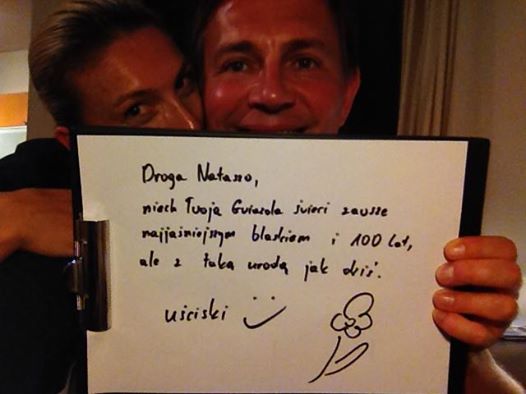 Droga Nataszo,
niech Twoja Gwiazda świeci zawsze
najjaśniejszym blaskiem i 100 lat,
ale z taką urodą jak dziś.
uściski